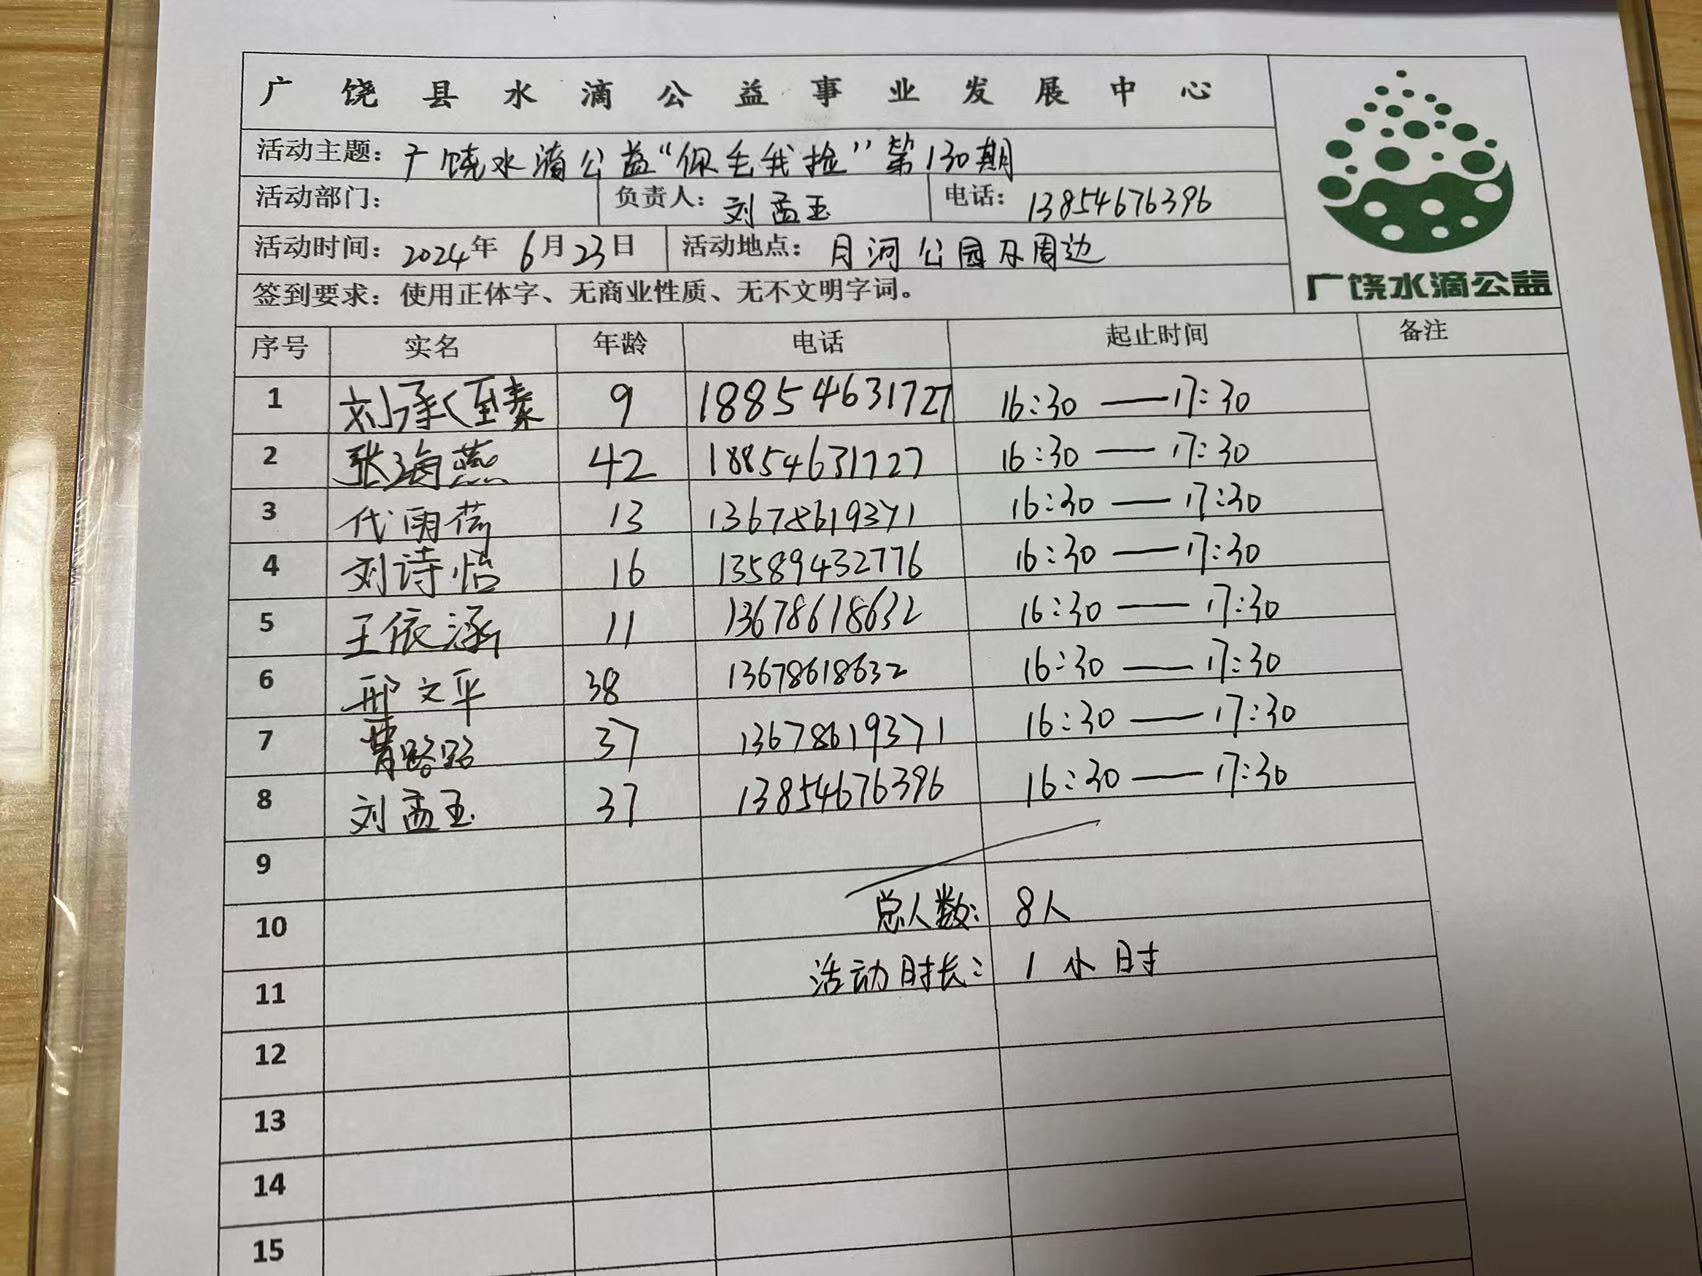 广饶县水滴公益事业发展中心
活动主题：广饶水滴公益“你丢我捡”第130期
活动部门： 负责人：刘孟玉 电话：13854676396
活动时间：2024年6月23日 活动地点：月河公园及周边
签到要求：使用正体字、无商业性质、无不文明字词。
广饶水滴公益
序号 实名 年龄 电话 起止时间 备注
1 刘承至臻 9 18854631727 16:30——17:30
2 张海燕 42 18854631727 16:30——17:30
3 代雨荷 13 13678619371 16:30——17:30
4 刘诗怡 16 13589432776 16:30——17:30
5 王依涵 11 13678618632 16:30——17:30
6 邢文平 38 13678618632 16:30——17:30
7 路路 37 13678619371 16:30——17:30
8 刘孟玉 37 13854676396 16:30——17:30
9
10 总人数：8人
11 活动时长：1小时
12
13
14
15